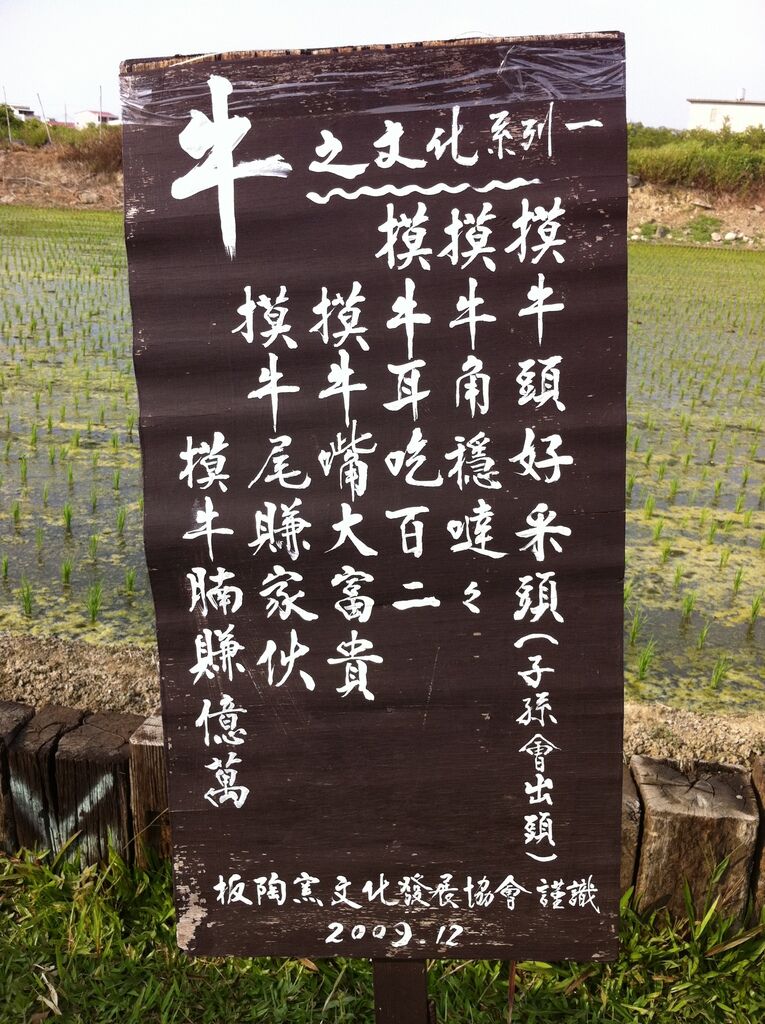 牛之文化系列一
摸牛頭好采頭(子孫會出頭)
摸牛角穩噠々
摸牛耳吃百二
摸牛嘴大富貴
摸牛尾賺家伙
摸牛腩賺億萬
板陶窯文化發展協會 謹識
2009.12